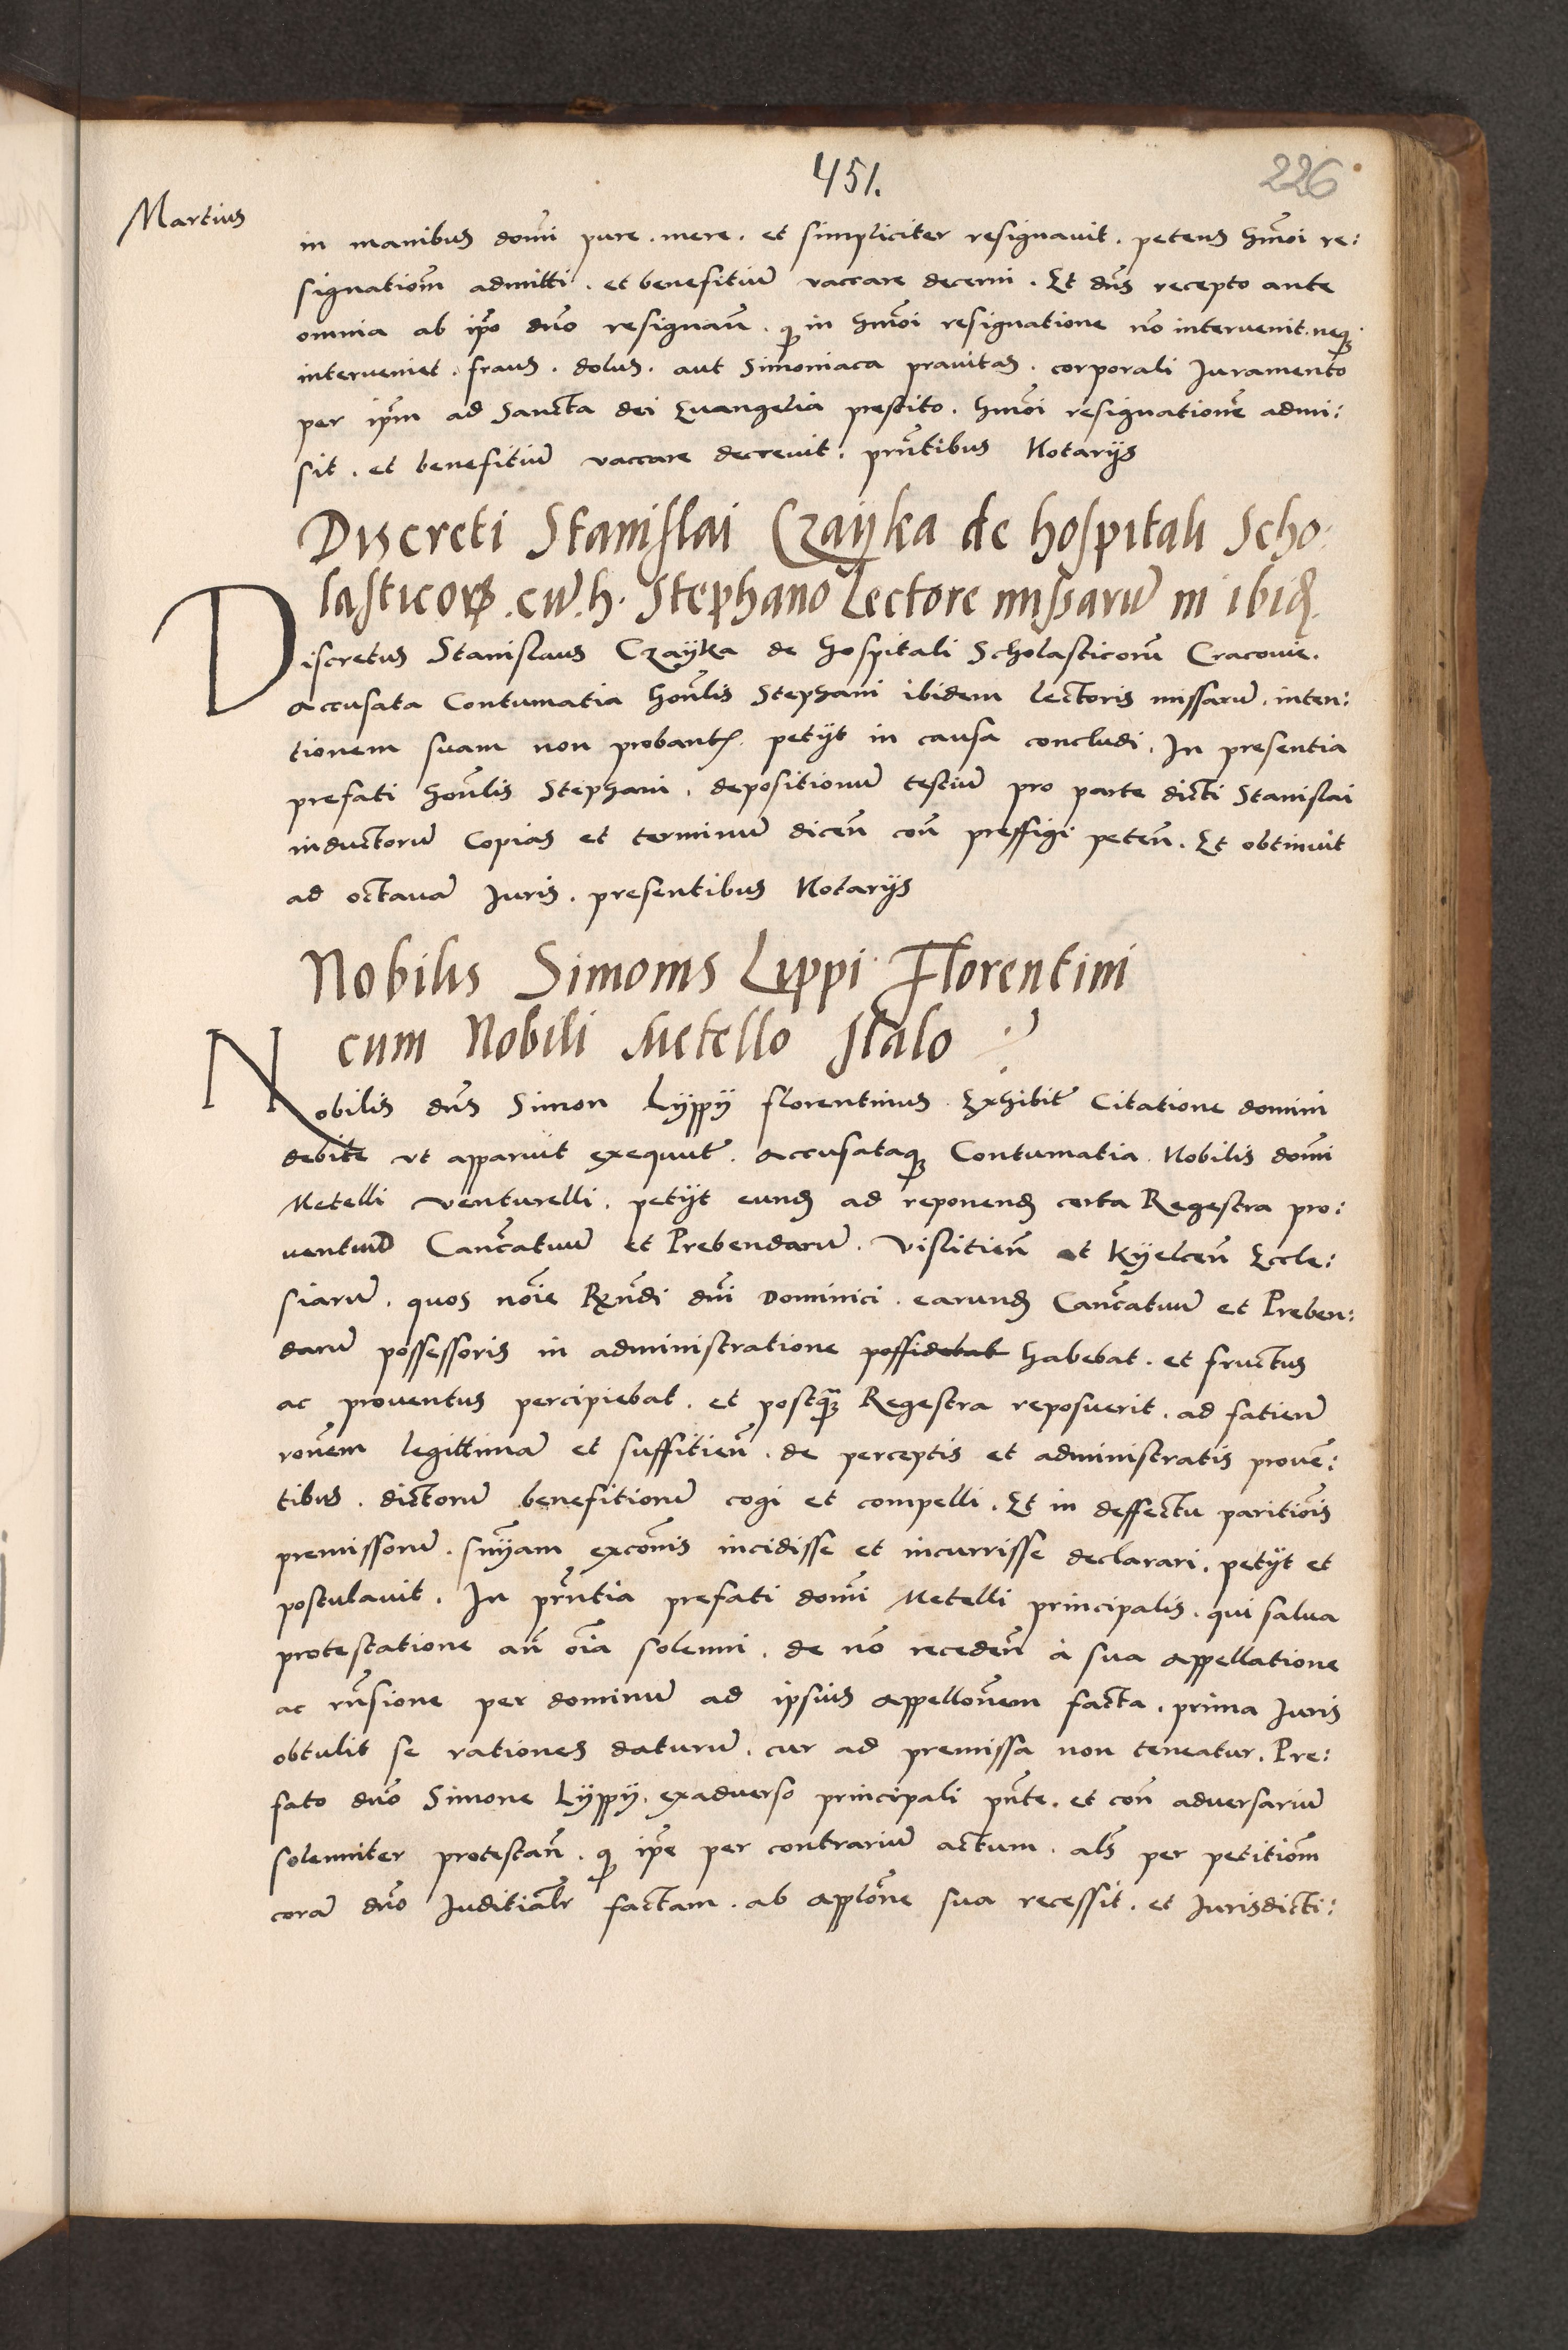 451.
226
Martius
in manibus domi pure . mere . et simpliciter resignavit . petens hmoi re:
signationm admitti . et benefitiu vaccare decerni . Et dns recepto ante
omnia ab ipso dno resignan . q in hmoi resignatione no intervenit . neq
interveniet . fraus . dolus . aut Simoniaca pravitas . corporali Juramento
per ipm ad Sancta dei Evangelia prestito . hmoi resignatione admi:
sit . et benefitiu vaccare decrevit . pntibus Notarijs
Discreti Stanislai Czaijka de hospitali Scho
lasticor . cu . h . Stephano Lectore missaru in ibid
Discretus Stanislaus Czaijka de hospitali Scholasticoru Cracovie .
accusata Contumatia honlis Stephani ibidem lectoris missaru . inten:
tionem suam non probantis . petijt in causa concludi . In presentia
prefati honlis Stephani . depositionu testiu pro parte dicti Stanislai
inductoru Copias et terminu dicen con preffigi peten . Et obtinuit
ad octava Juris . presentibus Notarijs
Nobilis Simonis Lippi Florentini
cum Nobili Metello Italo
Nobilis dns Simon Lijppij florentinus . Exhibit Citatione domini
debite ut apparuit exequut . accusataq Contumatia Nobilis domi
Metelli Venturelli . petijt eund ad reponend certa Regestra pro:
ventuu Cancatuu et Prebendaru . Vislitien et Kijelcen Eccle:
siaru . quos noie Rndi dni Dominici . earund Cancatuu et Preben:
daru possessoris in administratione possidebat habebat . et fructus
ac proventus percipiebat . et postq Regestra reposuerit . ad facien
ronem legittima et suffitien . de perceptis et administratis proven:
tibus . dictoru benefitioru cogi et compelli . Et in deffectu paritiois
premissoru . snijam excomis incidisse et incurrisse declarari . petijt et
postulavit . In pntia prefati domi Metelli principalis . qui salva
protestatione an oia solenni . de no receden à sua appellatione
ac rnsione per dominu ad ipsius appellonem facta . prima Juris
obtulit se rationes daturu . cur ad premissa non teneatur . Pre:
fato dno Simone Lijppij . exadverso principali pnte . et con adversariu
solenniter protestan . q ipe per contrariu actum . als per petitiom
cora dno Juditialr factam . ab applone sua recessit . et Jurisdicti: